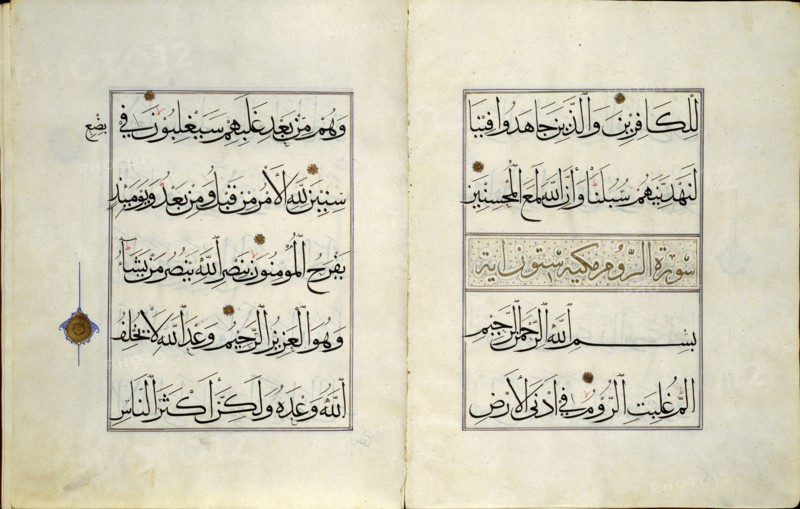 لِلْكَافِرِينَ وَالَّذِينَ جَاهَدُوا فِينَا
لَنَهْدِيَنَّهُمْ سُبُلَنَا وَأَنَّ اللَّهَ لَمَعَ الْمُحْسِنِينَ
سورة الروم مكية ستون اية
بسم الله الرحمن الرحيم
الم غُلِبَتِ الرُّومُ فِي أَدْنَى الْأَرْضِ
وَهُمْ مِنْ بَعْدِ غَلَبِهِمْ سَيَغْلِبُونَ فِي بِضْعِ
سِنِينَ لِلَّهِ الْأَمْرُ مِنْ قَبْلُ وَمِنْ بَعْدُ وَيَوْمَئِذٍ
يَفْرَحُ الْمُؤْمِنُونَ بِنَصْرِ اللَّهِ يَنْصُرُ مَنْ يَشَاءُ
وَهُوَ الْعَزِيزُ الرَّحِيمُ وَعْدَ اللَّهِ لَا يُخْلِفُ
اللَّهُ وَعْدَهُ وَلَكِنَّ أَكْثَرَ النَّاسِ
PHOTO12